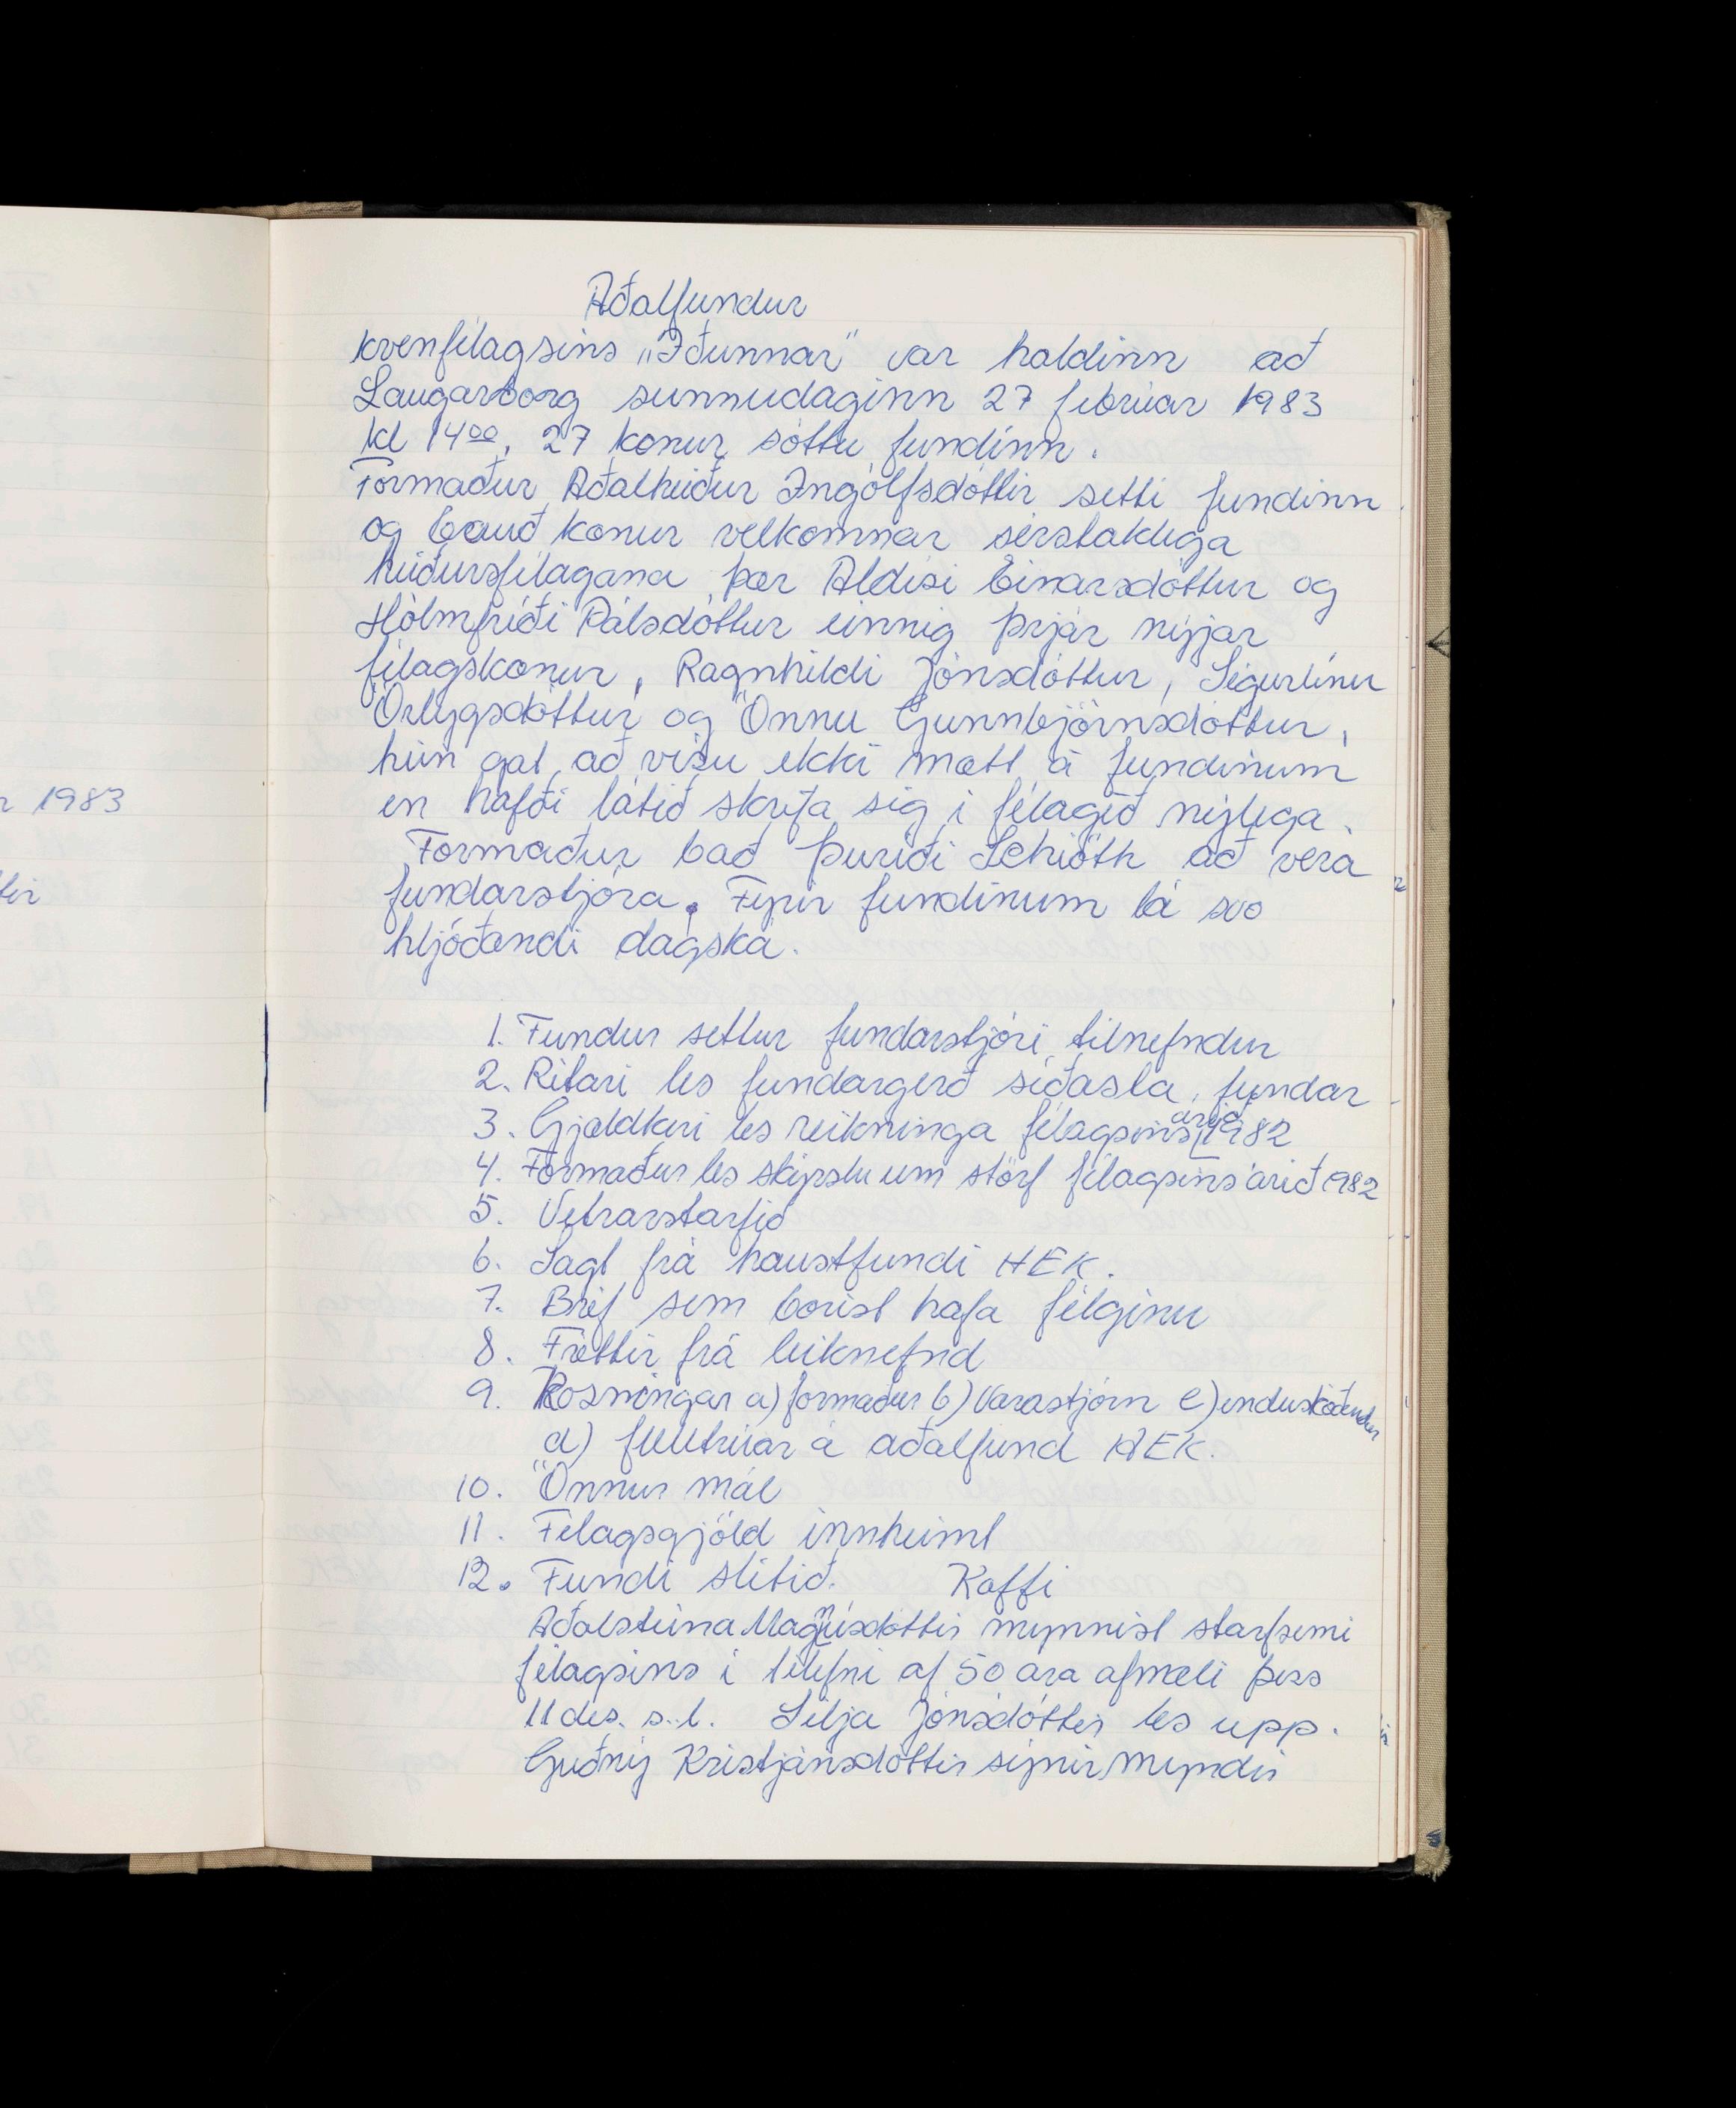 Aðalfundur
kvenfélagsins „Iðunnar" var haldinn að
Laugarborg sunnudaginn 27 febrúar 1983
kl 14⁰⁰, 27 konur sóttu fundinn.
Formaður Aðalheiður Ingólfsdóttir setti fundinn
og bauð konur velkomnar sérstaklega
heiðursfélagana þær Aldísi Einarsdóttur og
Hólmfríði Pálsdóttur einnig þrjár nýjar
félagskonur, Ragnhildi Jónsdóttur, Sigurlínu
Örlygsdóttur og Önnu Gunnbjörnsdóttur,
hún gat að vísu ekki mætt á fundinum
en hafði látið skrifa sig í félagið nýlega.
Formaður bað Þuríði Schiöth að vera
fundarstjóra. Fyrir fundinum lá svo
hljóðandi dagská.
1. Fundur settur fundarstjóri tilnefndur
2. Ritari les fundargerð síðasta fundar
3. Gjaldkeri les reikninga félagsins árið 1982
4. Formaður les skýrslu um störf félagsins árið 1982
5. Vetrarstarfið
6. Sagt frá haustfundi HEK.
7. Bréf sem borist hafa félginu
8. Fréttir frá leiknefnd
9. Kosningar a) formaður b) Varastjórn c) endurskoðendur
d) fulltrúar á aðalfund HEK.
10. Önnur mál
11. Félagsgjöld innheimt
12. Fundi slitið. Kaffi
Aðalsteina Magnúsdóttir mynnist starfsemi
félagsins í tilefni af 50 ára afmæli þess
11 des. s.l. Silja Jónsdóttir les upp.
Guðný Kristjánsdóttir sýnir myndir
r 1983
tir